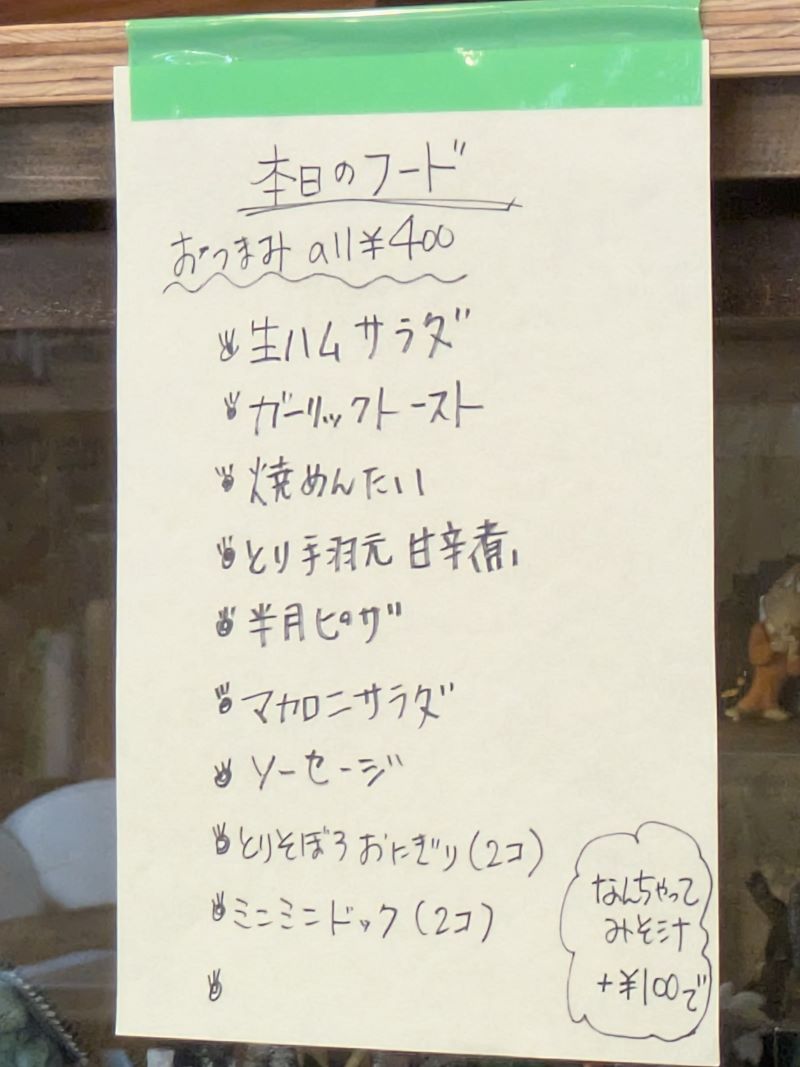 本日のフード
おつまみ all¥400
生ハムサラダ
ガーリックトースト
焼めんたい
とり手羽元 甘辛煮
半月ピザ
マカロニサラダ
ソーセージ
とりそぼろおにぎり(2コ)
ミニミニドック(2コ)
なんちゃって
みそ汁
+¥100で